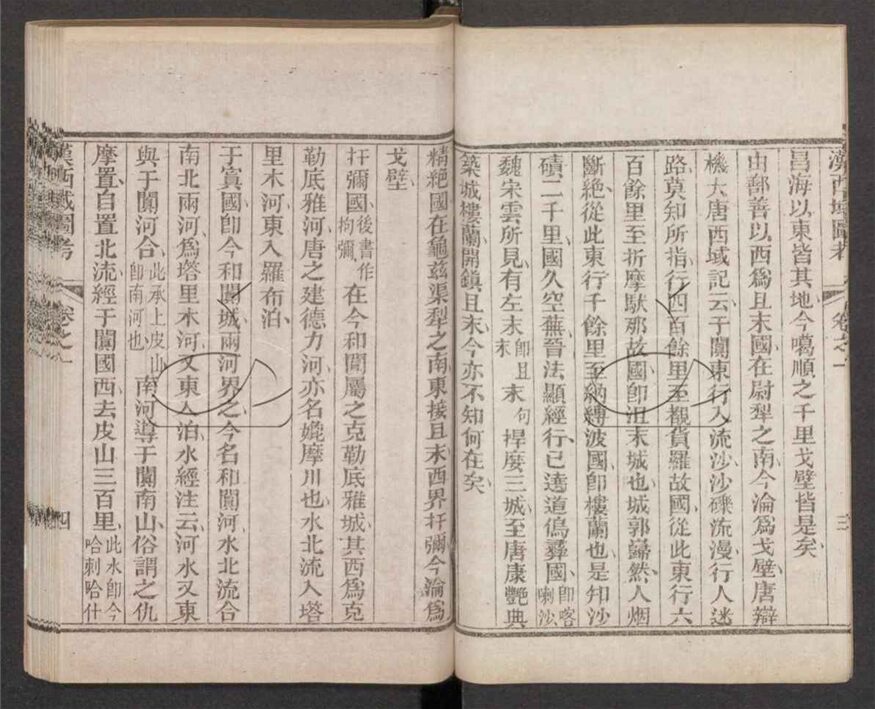 漢西域圖考 卷之一 三
昌海以東皆其地今噶順之千里戈壁皆是矣
由鄯善以西爲且末國在尉犁之南今淪爲戈壁唐辯
機大唐西域記云于闐東行入流沙沙礫流漫行人迷
路莫知所指行四百餘里至覩貨羅故國從此東行六
百餘里至折摩馱那故國卽沮末城也城郭巋然人烟
斷絶從此東行千餘里至納縛波國卽樓蘭也是知沙
磧二千里國久空蕪晉法顯經行已遶道僞彞國卽喀喇沙
魏宋雲所見有左末卽且末末句捍䴢三城至唐康艷典
築城樓蘭開鎮且末今亦不知何在矣
精絕國在龜茲渠犁之南東接且末西界扜彌今淪爲
戈壁
扜彌國後書作拘彌在今和闐屬之克勒底雅城其西爲克
勒底雅河唐之建德力河亦名媲摩川也水北流入塔
里木河東入羅布泊
于窴國卽今和闐城兩河界之今名和闐河水北流合
南北兩河爲塔里木河又東入泊水經注云河水又東
與于闐河合此承上皮山卽南河也南河導于闐南山俗謂之仇
摩置自置北流經于闐國西去皮山三百里此水卽今哈刺哈什
漢西域圖考 卷之一 四